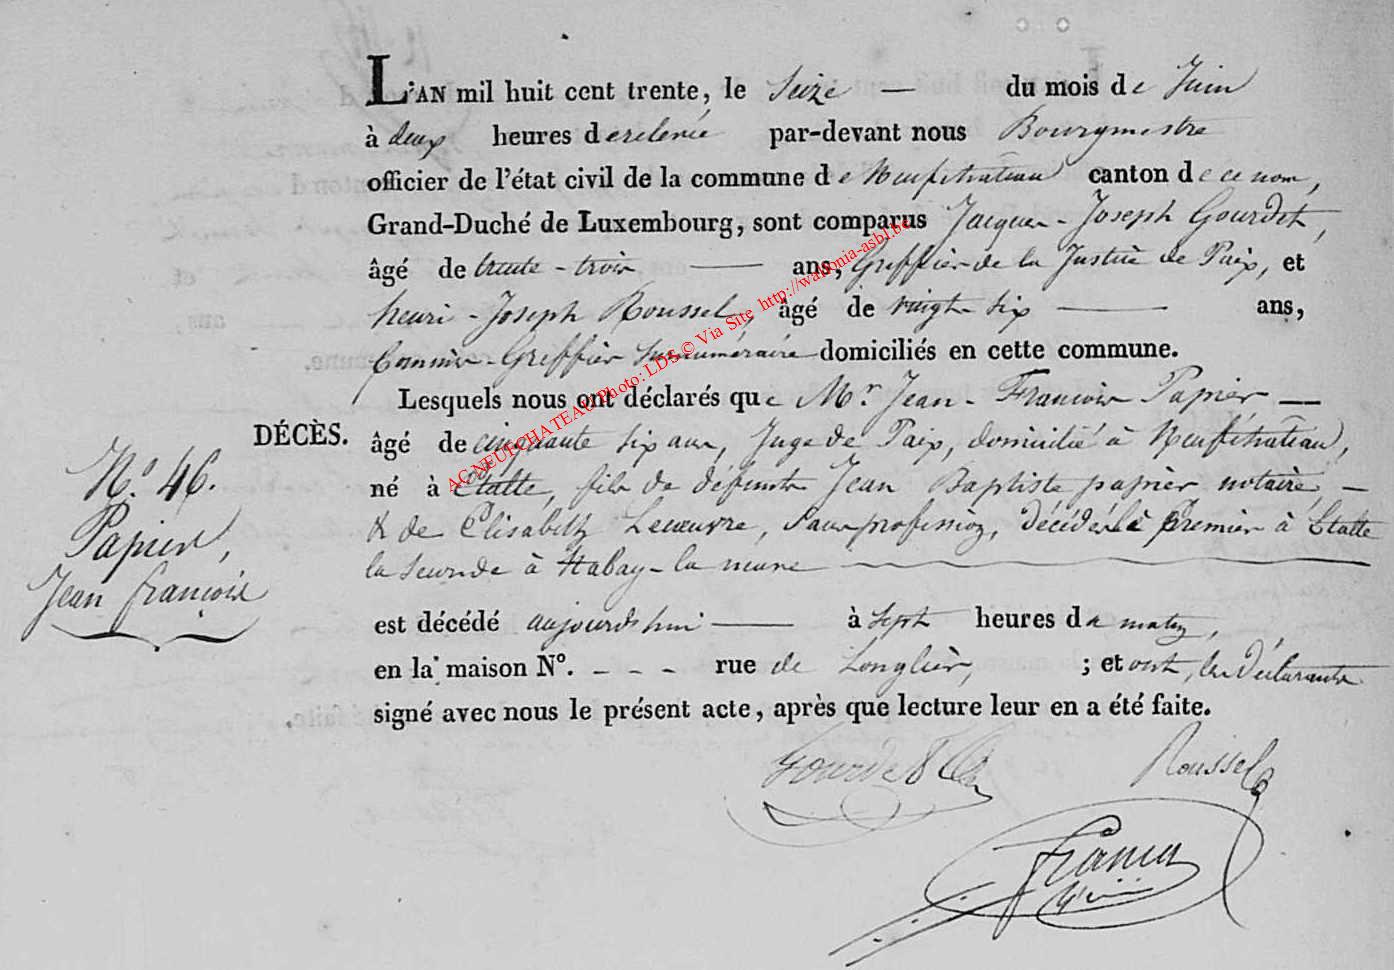 L'AN mil huit cent trente, le Seize — du mois de Juin
à deux heures de relevée par-devant nous Bourgmestre
officier de l'état civil de la commune de Neufchâteau canton de ce nom,
Grand-Duché de Luxembourg, sont comparus Jacques-Joseph Gourdet,
âgé de trente-trois — ans, Greffier de la Justice de Paix, et
henri-Joseph Roussel, âgé de vingt-six — ans,
Commis-Greffier Surnuméraire domiciliés en cette commune.
Lesquels nous ont déclarés que Mr. Jean-Francois Papier —
DÉCÈS. âgé de cinquante six ans, Juge de Paix, domicilié à Neufchâteau,
né à Etalle, fils de défunts Jean Baptiste papier notaire —
& de Elisabeth Lecoeuvre, Sans profession, décédés le premier à Etalle
la seconde à Habay-la neuve
est décédé aujourdhui — à Sept heures du matin,
en la maison No. - - - rue de Longlier, ; et ont, les déclarants
signé avec nous le présent acte, après que lecture leur en a été faite.
No. 46.
Papier,
Jean francois
Gourdet
Roussel
AC NEUFCHATEAU Photo: LDS © Via Site http://wallonia-asbl.be